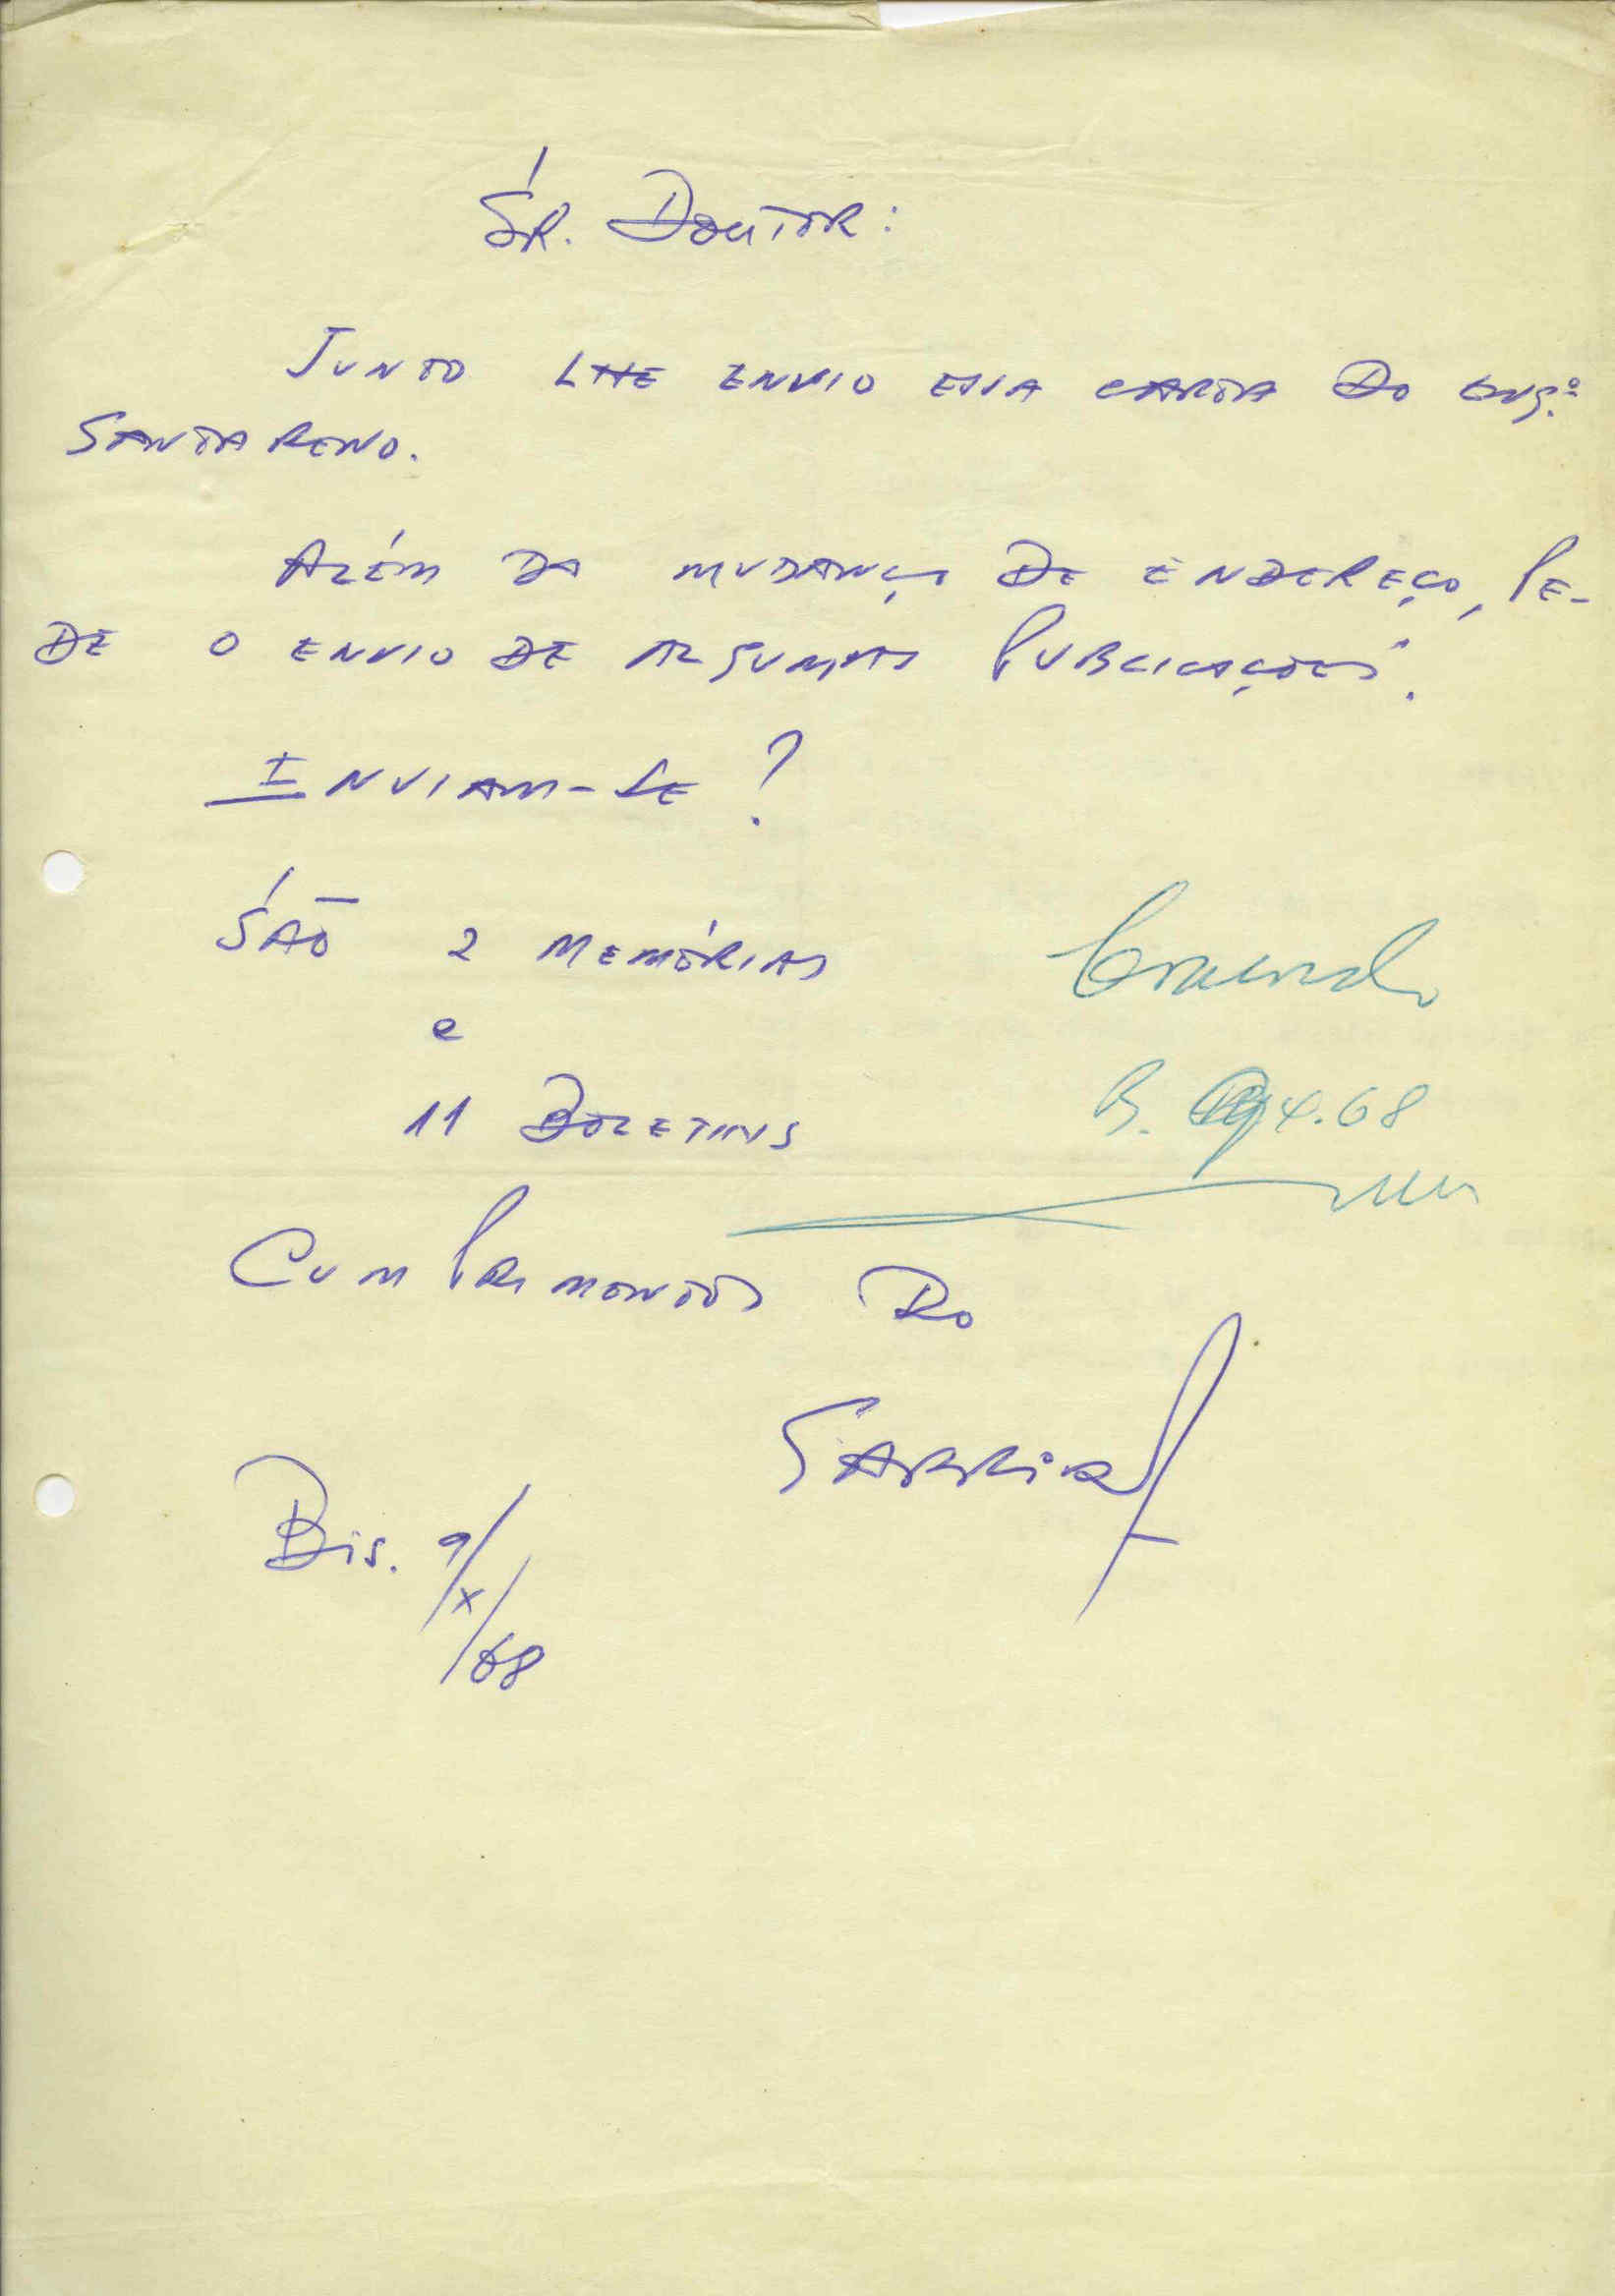 SR. DOUTOR:
JUNTO LHE ENVIO ESSA CARTA DO ENG.º
SANTARENO.
ALÉM DA MUDANÇA DE ENDEREÇO, PE-
DE O ENVIO DE ALGUMAS PUBLICAÇÕES.
ENVIAM-SE?
SÃO 2 MEMÓRIAS
e
11 BOLETINS
B. X.68
CUMPRIMENTOS DO
Bis. 9/X/68